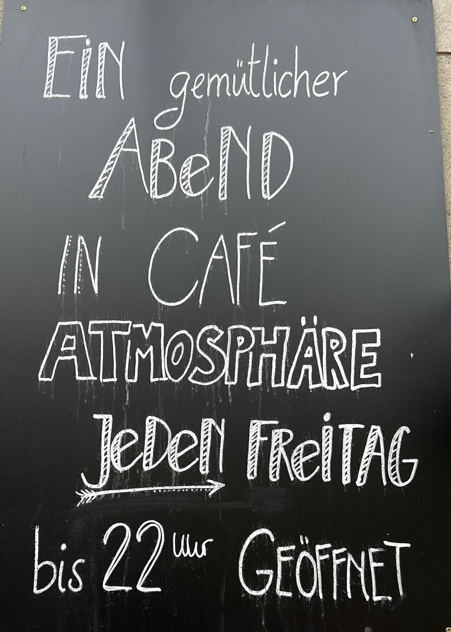 EiN gemütlicher
ABeND
IN CAFÉ
ATMOSPHÄRE
JeDeN FReiTAG
bis 22 Uhr GEÖFFNET